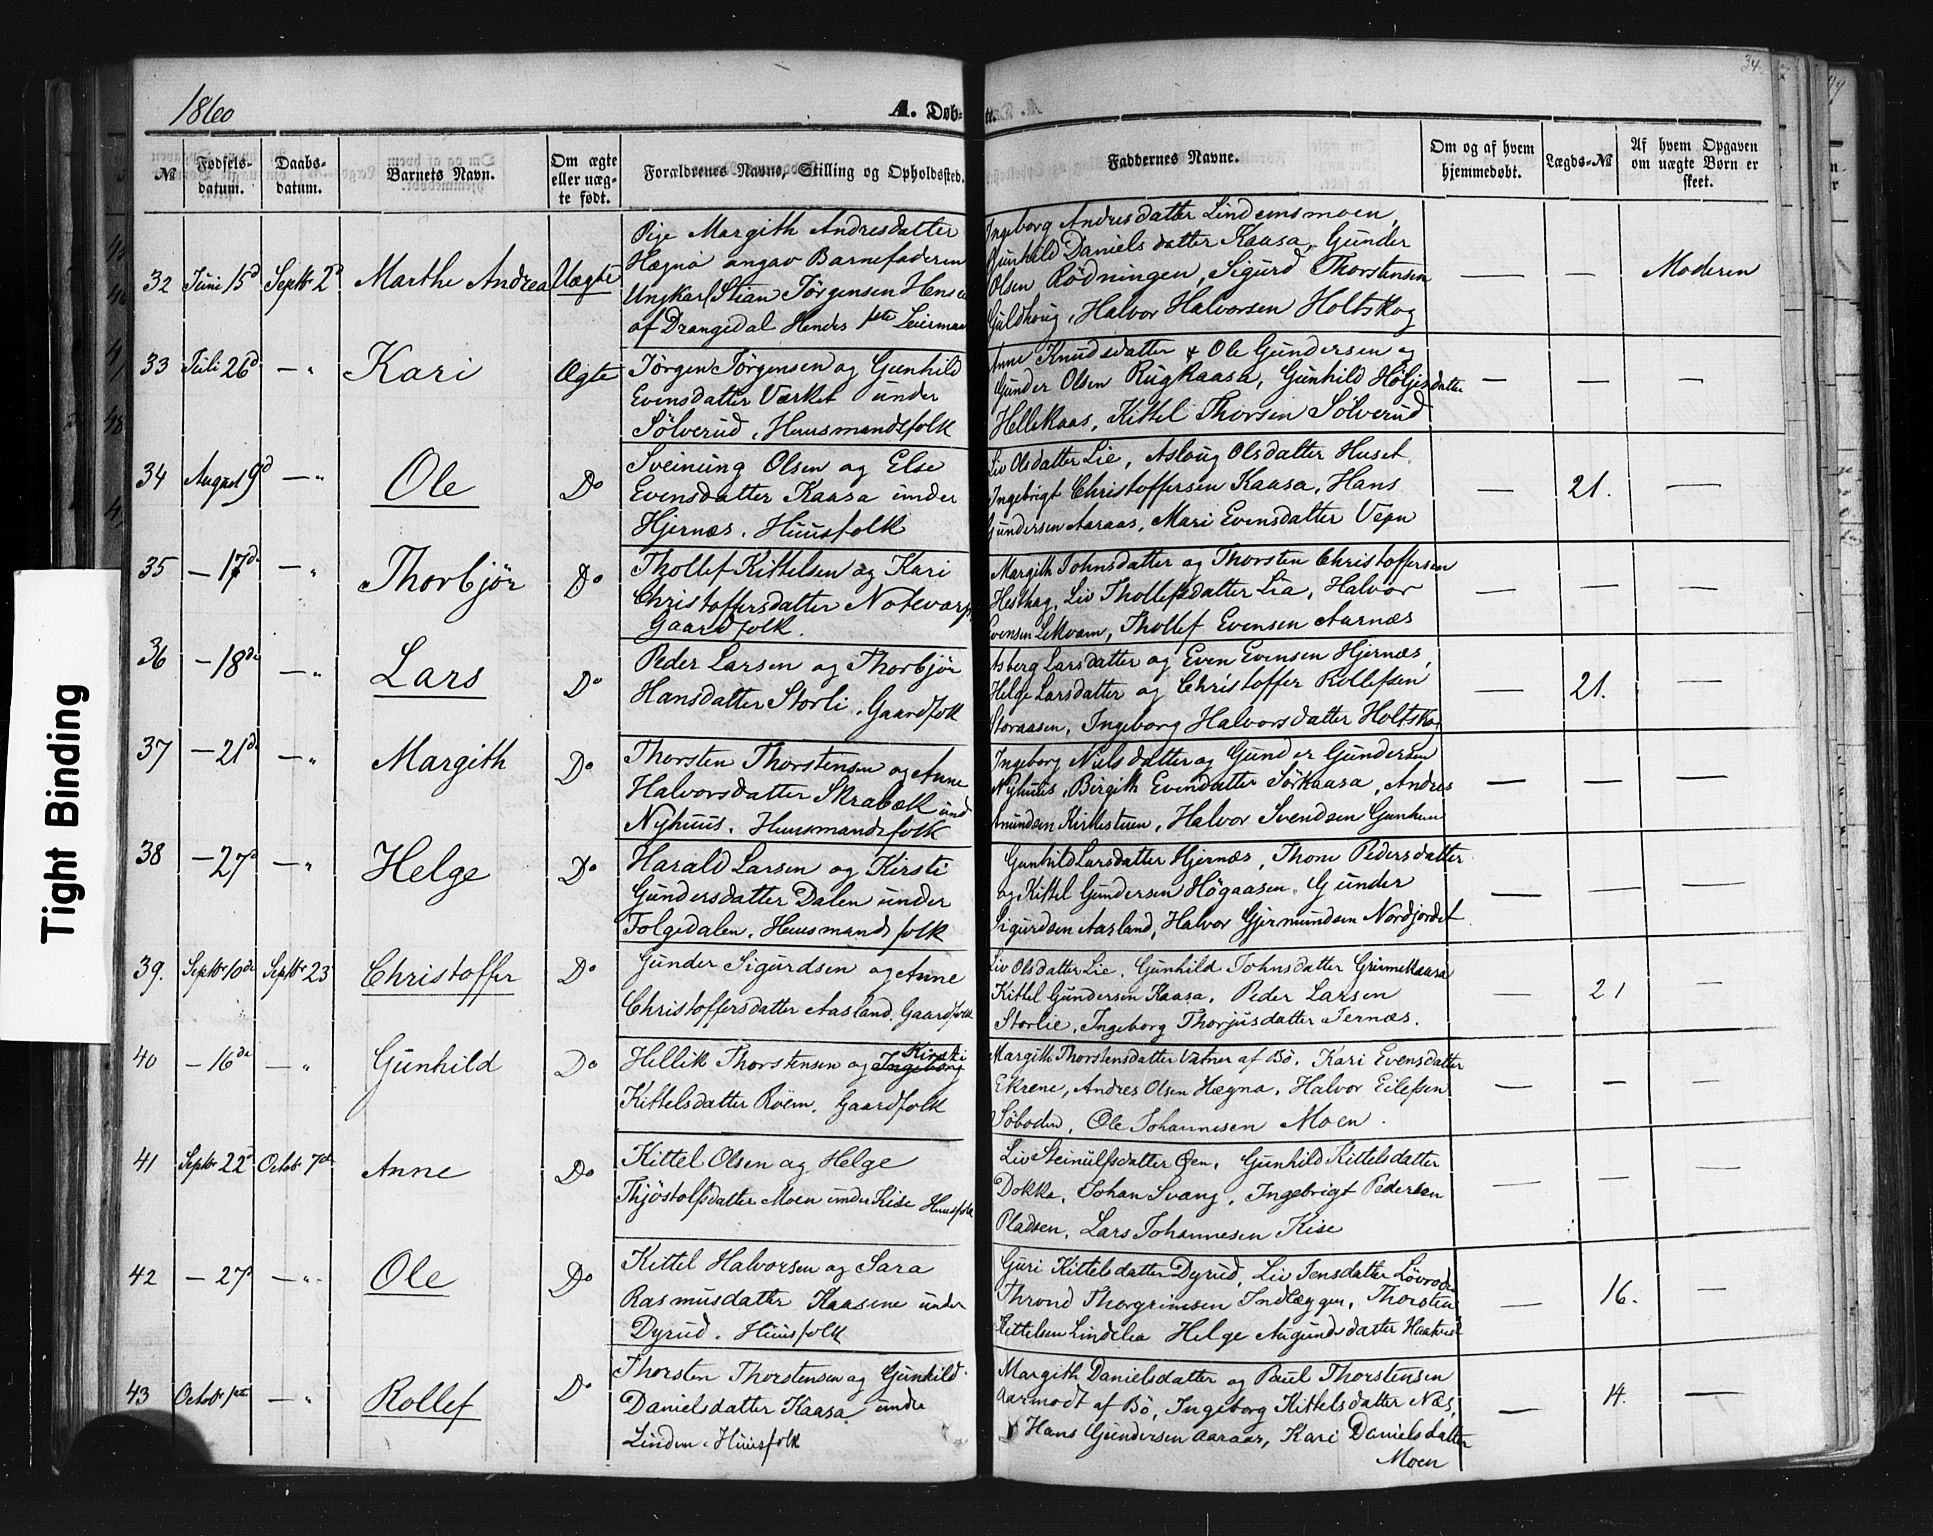 34
1860
A. Døb-
te.
№
Fødsels-
datum.
Daabs-
datum.
Barnets Navn.
Om ægte
eller uæg-
te født.
Forældrenes Navne, Stilling og Opholdssted.
Faddernes Navne.
Om og af hvem
hjemmedøbt.
Lægds-№
Af hvem Opgaven
om uægte Børn er
skeet.
32 Juni 15d Septbr 2d Marthe Andrea Uægte
Pige Margith Andresdatter
Hægna angav Barnefaderen
Ungkarl Stian Jørgensen
af Drangedal Hendes 1ste Leiermaal
Ingeborg Andresdatter Lindemsmoen,
Gunhild Danielsdatter Kaasa, Gunder
Olsen Rödningen, Sigurd Thorstensen
Guldhoug, Halvor Halvorsen Holtskog
— — Moderen
33 Juli 26d — " Kari Ægte
Jörgen Jörgensen og Gunhild
Evensdatter Værket under
Sölverud. Huusmandsfolk
Anne Knudsdatter & Ole Gundersen og
Gunder Olsen Rugkaasa, Gunhild Höljesdatter
Hellekaas, Kittel Thorsen Sölverud
— — —
34 August 9d — " Ole Do
Sveinung Olsen og Else
Evensdatter Kaasa under
Hjernæs. Huusfolk
Liv Olsdatter Lie, Asloug Olsdatter Huset
Ingebrigt Christoffersen Kaasa, Hans
Gundersen Aaraas, Mari Evensdatter
— 21. —
35 — 17de — " Thorbjör Do
Thollef Kittelsen og Kari
Christoffersdatter Notevarp
Gaardfolk.
Margith Johnsdatter og Thorsten Christoffersen
Hesthag, Liv Thollefsdatter Lia, Halvor
Evensen Lekvam, Thollef Evensen Aarnæs
— — —
36 — 18de — " Lars Do
Peder Larsen og Thorbjör
Hansdatter Storli. Gaardfolk
Asberg Larsdatter og Even Evensen Hjernæs,
Helge Larsdatter og Christoffer Rollefsen
Storaasen, Ingeborg Halvorsdatter Holtskog
— 21. —
37 — 21de — " Margith Do
Thorsten Thorstensen og Anne
Halvorsdatter Skrabæk und
Nyhuus. Huusmandsfolk
Ingeborg Nielsdatter og Gunder Gundersen
Nyhuus, Birgith Evensdatter Sörkaasa, Andres
Amundsen Kirkestuen, Halvor Svendsen
— — —
38 — 27d — " Helge Do
Harald Larsen og Kirsti
Gundersdatter Dalen under
Folgedalen. Huusmandsfolk
Gunhild Larsdatter Hjernæs, Thone Pedersdatter
og Kittel Gundersen Högaasen, Gunder
Sigurdsen Aasland, Halvor Gjermundsen Nordjordet
— — —
39. Septbr 10de Septbr 23 Christoffer Do
Gunder Sigurdsen og Anne
Christoffersdatter Aasland. Gaardfolk
Liv Olsdatter Lie. Gunhild Johnsdatter Grimekaasa
Kittel Gundersen Kaasa. Peder Larsen
Storlie, Ingeborg Thorjusdatter Jernæs.
— 21 —
40 — 16de — " Gunhild Do
Kirsti
Hellik Thorstensen og Ingeborg
Kittelsdatter Röem. Gaardfolk
Margith Thorstensdatter Vatner af Bö. Kari Evensdatter
Ekrene, Andres Olsen Hægna, Halvor Eilefsen
Söboden, Ole Johannesen Moen.
— — —
41 Septbr 22d Octobr 7de Anne Do
Kittel Olsen og Helge
Thjöstolfsdatter Moen under Kise Huusfolk
Liv Steinulfsdatter Øen. Gunhild Kittelsdatter
Dokka, Johan Svang, Ingebrigt Pedersen
Pladsen, Lars Johannesen Kise
— — —
42 — 27d — " Ole Do
Kittel Halvorsen og Sara
Rasmusdatter Kaasene under
Dyrud. Huusfolk
Guri Kittelsdatter Dyrud, Liv Jensdatter
Thrond Thorgrimsen Indlæggen, Thorsten
Kittelsen Lindelia Helge Augundsdatter
— 16. —
43 Octobr 1ste — " Rollef Do
Thorsten Thorstensen og Gunhild
Danielsdatter Kaasa unde
Linden. Huusfolk
Margith Danielsdatter og Paul Thorstensen
Aarmodt af Bö, Ingeborg Kittelsdatter Næs,
Hans Gundersen Aaraas, Kari Danielsdatter
Moen
— 14. —
Tight Binding